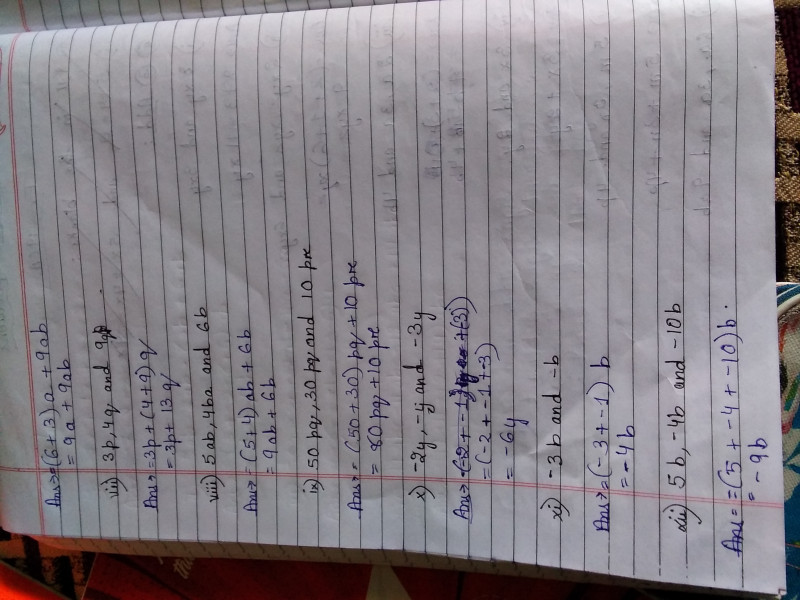 Ans→ = (6+3)a + 9ab
= 9a + 9ab
vii) 3p, 4q and 9q
Ans→ = 3p + (4+9)q
= 3p + 13q
viii) 5ab, 4ba and 6b
Ans→ = (5+4)ab + 6b
= 9ab + 6b
ix) 50pq, 30pq and 10 pr
Ans→ = (50+30)pq + 10 pr
= 80pq + 10 pr
x) -2y, -y and -3y
Ans→ = (-2 + -1 + (-3))
= (-2 + -1 + -3)
= -6y
xi) -3b and -b
Ans→ = (-3 + -1) b
= -4b
xii) 5b, -4b and -10b
Ans = = (5 + -4 + -10)b.
= -9b